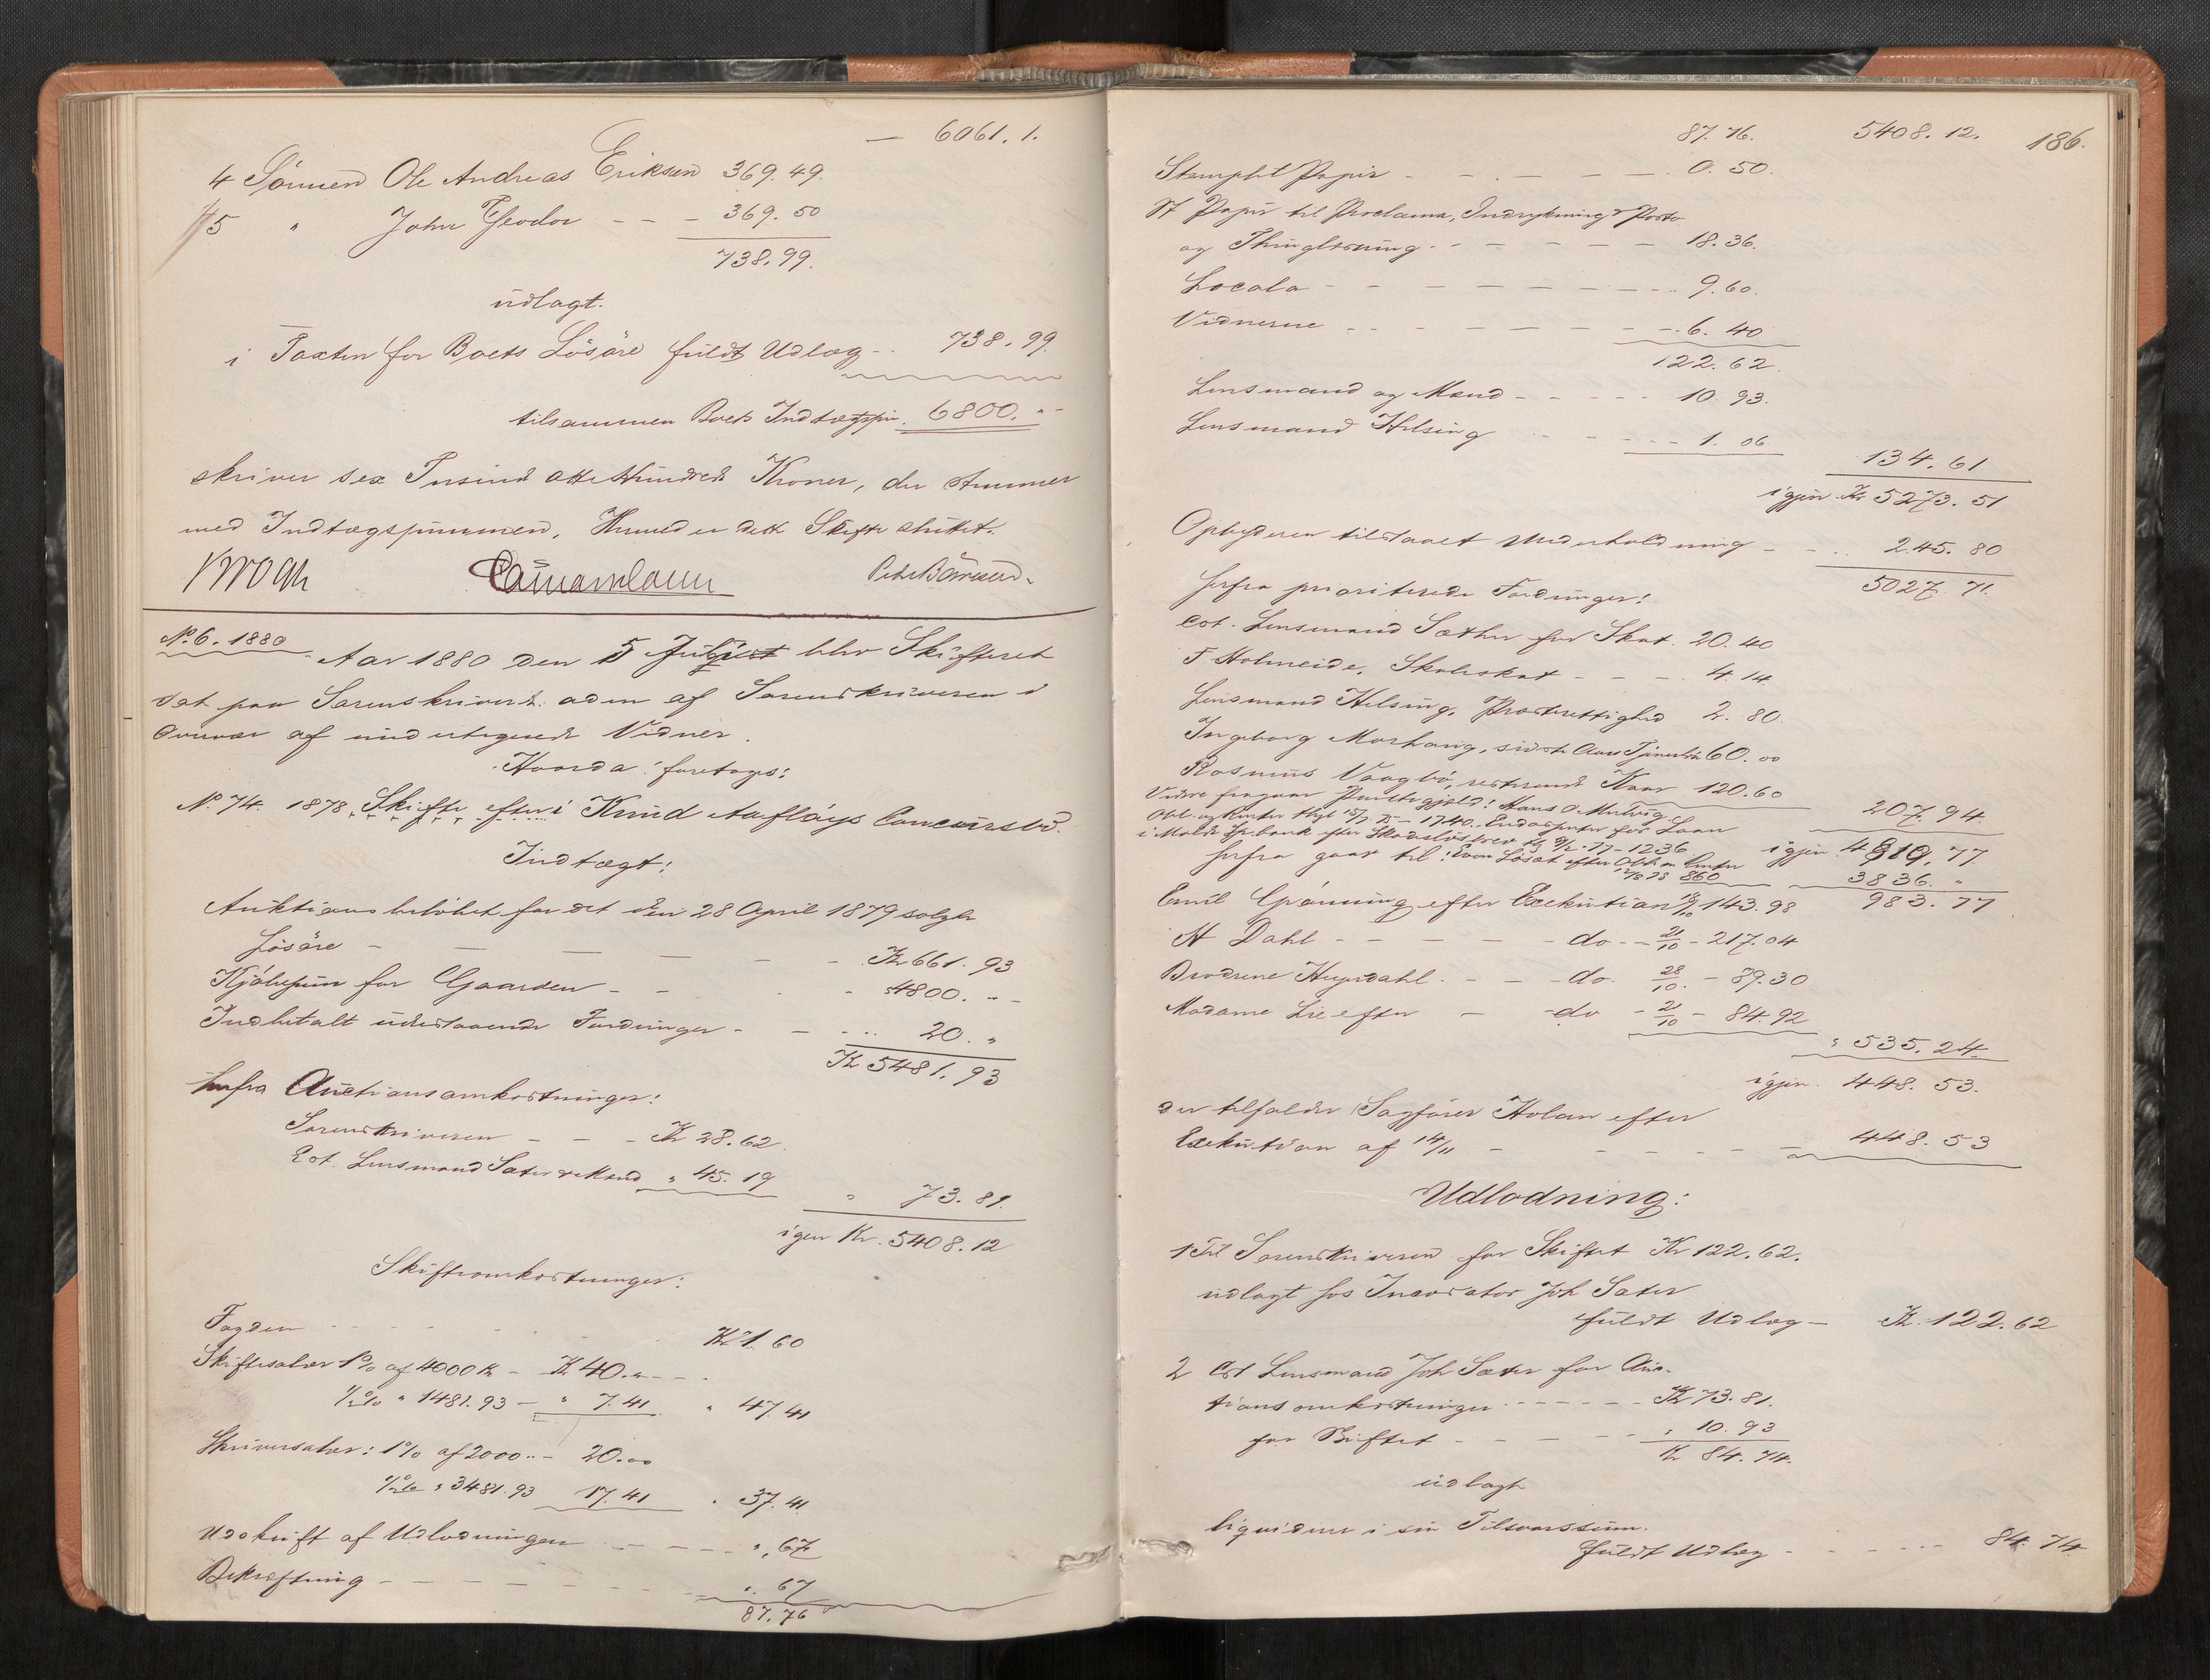 — 6061. 1.
4 Sønnen Ole Andreas Eriksen 369. 49.
5 " John Theodor - - - 369. 50
738. 99.
udlagt.
i Taxten for Boets Løsøre fuldt Udlæg - - 738. 99.
tilsammen Boets Indtægtssum. 6800. "-
skriver sex Tusind otte Hundrede Kroner, der stemmer
med Indtægtssummen. Hermed er dette Skifte sluttet.
Krogh
No. 6. 1880
Aar 1880 den 5 Juli blev Skifteret
sat paa Sorenskriver af Sorenskriveren i
Overvær af undertegnede Vidner.
Hvorda foretoges:
No. 74. 1878, Skifte efter i Knud Aafløys Concursbo.
Indtægt:
Auktionsbeløbet for det den 28 April 1879 solgte
Løsøre - — — — - - Kr 661. 93
Kjøbesum for Gaarden - - - - 4800. - -
Indbetalt udestaaende Fordringer - - - .. 20. "
Kr 5481. 93
herfra Auctionsomkostninger:
Sorenskriveren - - - Kr 28. 62.
Cst. Lensmand Sæter & Mænd " 45. 19
" 73. 81.
igen Kr. 5408. 12
Skifteomkostninger:
Fogden - - - - - Kr 1. 60
Skiftesalær 1% af 4000 Kr - Kr 40. " - - -
½% " 1481. 93 - " 7. 41. " 47 41
Skriversalær: 1% af 2000.. - 20. 00
½% " 3481. 93 17. 41 " 37. 41
Udskrift af Udlodningen - - - - ", 67
Bekræftning - - - - - - - ". 67
87. 76
87. 76. 5408. 12. 186.
Stemplet Papir - - . - - - . 0. 50.
St Papir til Proclama, Indrykning & Porto
og Thinglæsning - - - - - - 18. 36.
Locale - - - - - - - - - .. 9. 60.
Vidnerne - - - - - - - - - 6. 40
122. 62.
Lensmand og Mænd - - - - - 10. 93.
Lensmand Helsing - - - - - 1. 06
134. 61
igjen Kr 5273. 51
Opbyderen tilstaaet Underholdning - - .. 245. 80
5027. 71.
herfra prioriterede Fordringer:
Cst. Lensmand Sæther for Skat. 20. 40
T Holmeide, Skoleskat - - - . 4 14.
Lensmand Helsing, Præsterettighed 2. 80.
Ingeborg Morhaug, sidste Aars Tjenesteløn 60. 00
Rasmus Vaagbø, resterende Kaar 120. 60
207. 94.
Videre fragaar Pantegjæld: Hans O Malvig
Obl. og Renter thgl 15/7 75 - 1740. Endvidere for Laan
i Molde Sp. bank efter Skadesløsbrev tgl 9/2. 77 - 1236
igjen. 4819. 77.
herfra gaar til: Even Løset efter Obl. m Renter
12/2 78 860
3836. "
983. 77
Emil Grønning efter Execution 19/10 143. 98
A Dahl - - - - - - do - - 21/10 - 217. 04
Brødrene Huusdahl. - - - do. 28/10. - 89. 30
Madame Lie efter - - do - 21/10 - 84. 92
" 535. 24.
igjen. 448. 53.
der tilfalder Sagfører Holan efter
Exekution af 14/11 - - - - - - 448. 53
Udlodning:
1 Til Sorenskriveren for Skiftet Kr 122. 62.
udlagt hos Incasator Joh Sæter
fuldt Udlæg - Kr. 122. 62
2 Cst Lensmand Joh Sæter for Auc-
tionsomkostninger - - - - - - Kr 73. 81.
for Skiftet - - - - - - " 10. 93
Kr 84. 74.
udlagt
liquiderer i sin Tilsvarssum.
fuldt Udlæg - - - - - - 84. 74.